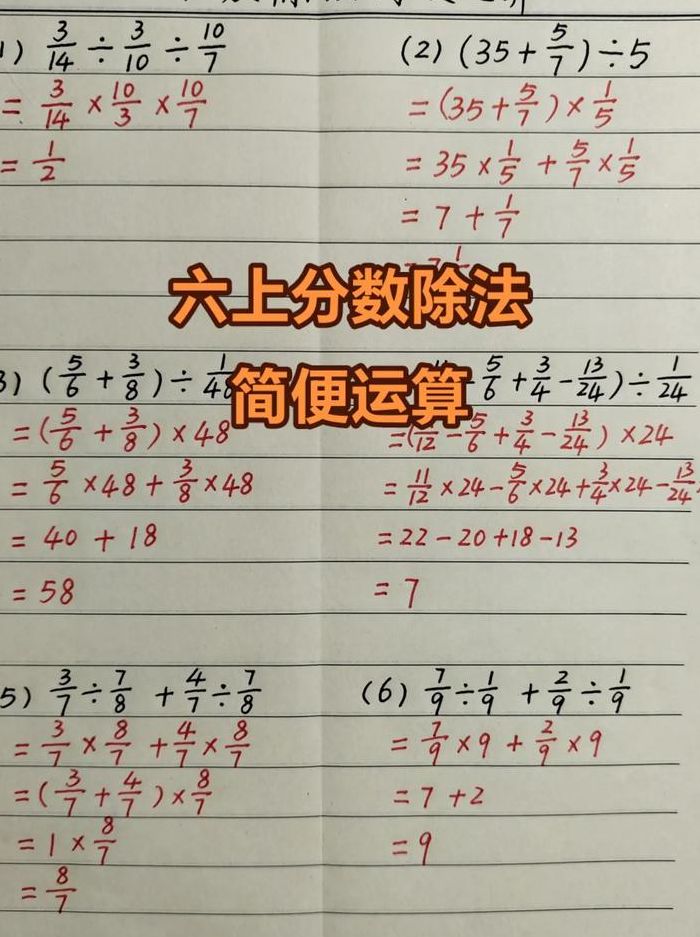 1) 3/14 ÷ 3/10 ÷ 10/7
= 3/14 × 10/3 × 10/7
= 1/2
(2) (35 + 5/7) ÷ 5
= (35 + 5/7) × 1/5
= 35 × 1/5 + 5/7 × 1/5
= 7 + 1/7
六上分数除法
简便运算
3) (5/6 + 3/8) ÷ 1/48
= (5/6 + 3/8) × 48
= 5/6 × 48 + 3/8 × 48
= 40 + 18
= 58
5/6 + 3/4 - 13/24) ÷ 1/24
=( /12 - 5/6 + 3/4 - 13/24) × 24
= 11/12 × 24 - 5/6 × 24 + 3/4 × 24 - 13/24
= 22 - 20 + 18 - 13
= 7
5) 3/7 ÷ 7/8 + 4/7 ÷ 7/8
= 3/7 × 8/7 + 4/7 × 8/7
= (3/7 + 4/7) × 8/7
= 1 × 8/7
= 8/7
(6) 7/9 ÷ 1/9 + 2/9 ÷ 1/9
= 7/9 × 9 + 2/9 × 9
= 7 + 2
= 9